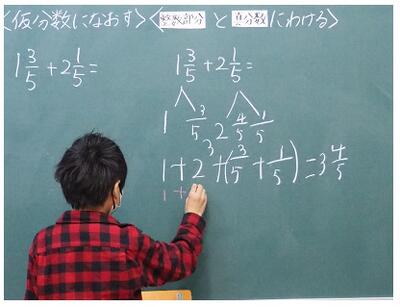 〈仮分数になおす〉〈整数部分と真分数にわける〉
1 3/5 + 2 1/5 =
1 3/5 + 2 1/5 =
1 3/5 2 4/5 1/5
3
1 + 2 + (3/5 + 1/5) = 3 4/5
1 +